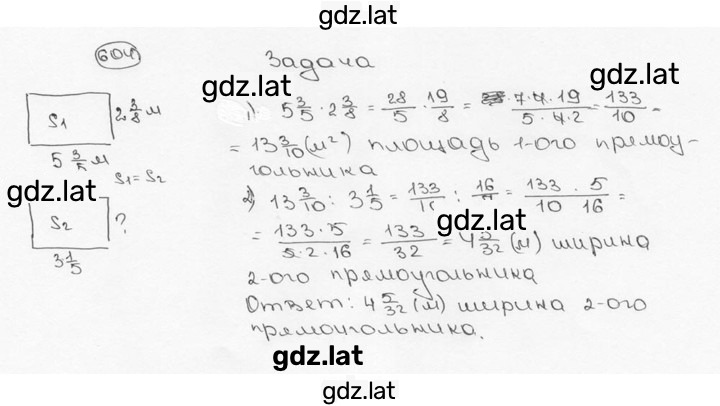 gdz.lat
604
Задача
gdz.lat
S1
2 3/8 м
5 3/5 м
S1 = S2
S2
?
3 1/5
gdz.lat
1) 5 3/5 · 2 3/8 = 28/5 · 19/8 = 7·4·19/5·4·2 = 133/10 =
= 13 3/10 (м²) площадь 1-ого прямоу-
гольника
2) 13 3/10 : 3 1/5 = 133/10 : 16/5 = 133 · 5/10 16 =
gdz.lat
= 133·5/5·2·16 = 133/32 = 4 5/32 (м) ширина
2-ого прямоугольника
Ответ: 4 5/32 (м) ширина 2-ого
прямоугольника.
gdz.lat
gdz.lat